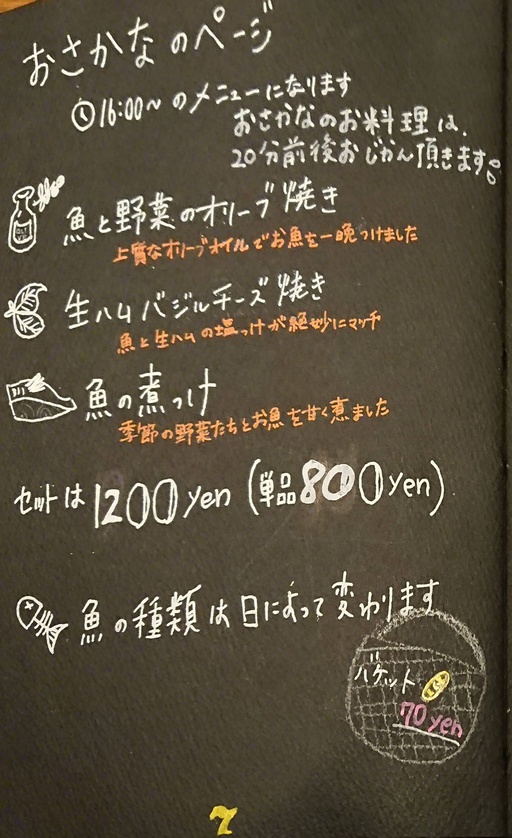 おさかなのページ
16:00〜のメニューになります
おさかなのお料理は、
20分前後おじかん頂きます。
魚と野菜のオリーブ焼き
上質なオリーブオイルでお魚を一晩つけました
生ハムバジルチーズ焼き
魚と生ハムの塩っけが絶妙にマッチ
魚の煮つけ
季節の野菜たちとお魚を甘く煮ました
セットは1200yen(単品800yen)
魚の種類は日によって変わります
バケット
70yen
7